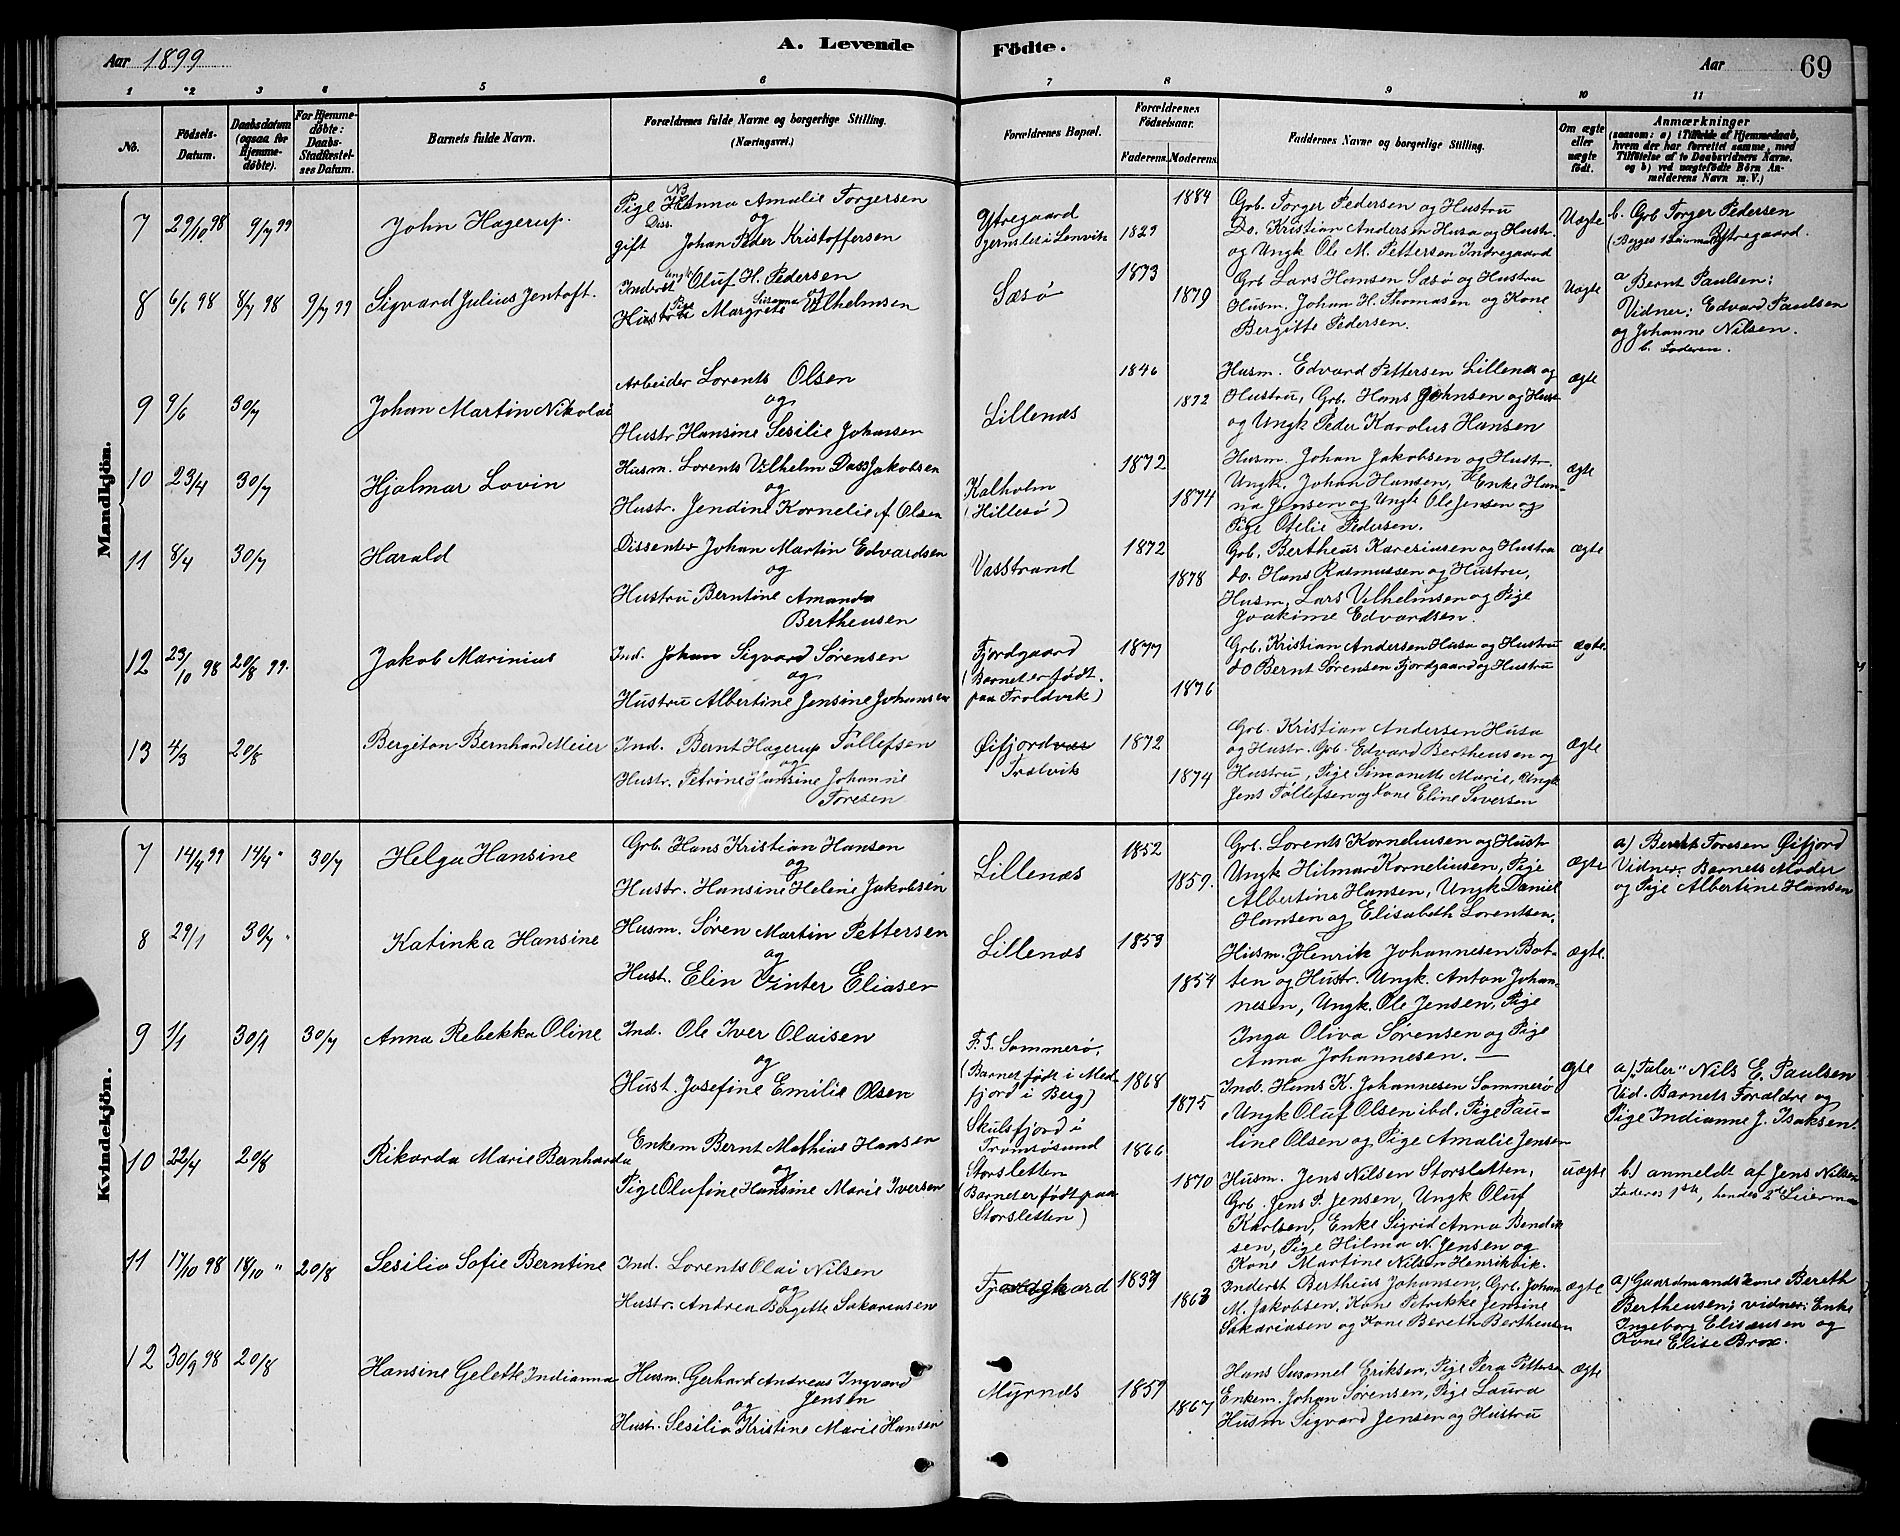 Aar 1899
A. Levende
Födte.
Aar
69
1 2 3 4 5 6 7 8 9 10 11
No.
Födsels-Datum.
Daabsdatum (ogsaa for Hjemme-døbte).
For Hjemme-døbte: Daabs-Stadfæstel-ses Datum.
Barnets fulde Navn.
Forældrenes fulde Navne og borgerlige Stilling. (Næringsvei.)
Forældrenes Bopæl.
Forældrenes Födselsaar.
Faderens. Moderens.
Faddernes Navne og borgerlige Stilling.
Om ægte eller uægte født.
Anmærkninger
(saasom: a) i Tilfælde af Hjemmedaab,
hvem der har forrettet samme, med
Tilföielse af to Daabsvidners Navne.
og b) ved uægtefödte Börn An-
melderens Navn m. V.)
Mandkjön.
7 29/10 98 9/7 99 John Hagerup.
NB
Pige Hanna Amalie Torgersen
Diss. og
gift Johan Peder Kristoffersen
Yttregaard
Gjernslet i Lenvik
1884
1829
Grb. Torger Pedersen og Hustru
Do. Kristian Andersen Husa og Hustr.
og Ungk Ole M. Pettersen Indregaard
Uægte
b. Grb Torger Pedersen
(Begges 1 Leiermaal) Yttregaard.
8 6/6 98 8/7 98 9/7 99 Sigvard Julius Jentoft.
Inderst Ungk Oluf H. Pedersen
og
Hustru Pige Margrete Susanna Vilhelmsen
Sæsø
1873
1879
Grb Lars Hansen Sæsø og Hustru
Husm. Johan H. Thomasen og Kone
Bergitte Pedersen.
Uægte
a Bernt Paulsen;
Vidner: Edvard Paulsen
og Johanne Nilsen.
b. Faderen.
9 9/6 30/7 Johan Martin Nikolai
Arbeider Lorents Olsen
og
Hustr Hansine Sesilie Johansen
Lillenæs
1846
1872
Husm. Edvard Pettersen Lillenæs og
Hustru, Grb. Hans Johnsen og Hust
og Ungk Peder Karolus Hansen
ægte
10 23/4 30/7 Hjalmar Lovin
Husm. Lorents Vilhelm Dass Jakobsen
og
Hustr. Jendine Kornelie f. Olsen
Kalholm
(Hillesø)
1872
1874
Husm. Johan Jakobsen og Hustr.
Ungk. Johan Hansen, Enke Han-
na Jensen og Ungk Ole Jensen og
Pige Otelie Pedersen.
ægte
11 8/4 30/7 Harald
Dissenter Johan Martin Edvardsen
og
Hustru Berntine Amanda
Bertheusen
Vasstrand
1872
1878
Grb. Bertheus Karesiusen og Hustru
do. Hans Rasmussen og Hustru,
Husm. Lars Vilhelmsen og Pige
Joakime Edvardsen.
ægte
12 23/10 98 20/8 99. Jakob Marinius
Ind. Johan Sigvard Sørensen
og
Hustru Albertine Jensine Johansen
Fjordgaard
(Barnet er født
paa Troldvik)
1877
1876
Grb. Kristian Andersen Husa og Hustru
do Bernt Sørensen Fjordgaard og Hustru
ægte.
13 4/3 20/8 Bergiton Bernhard Meier
Ind. Bernt Hagerup Tollefsen
og
Hustr. Petrine Hansine Johanne
Toresen
Øifjordvær
Trolvik
1872
1874
Grb. Kristian Andersen Husa
og Hustr. Grb. Edvard Bertheusen og
Hustru, Pige Simonette Marie, Ungk
Jens Tollefsen og Kone Eline Siversen
ægte
Kvindekjön.
7 14/4 99 14/4 " 30/7 Helga Hansine
Grb. Hans Kristian Hansen
og
Hustr. Hansine Helene Jakobsen
Lillenæs
1852
1859.
Grb. Lorents Korneliusen og Hustr
Ungk Hilmar Korneliusen, Pige
Albertine Hansen, Ungk Daniel
Hansen og Elisabeth Lorentsen.
ægte
a) Bernt Toresen Øifjord
Vidner: Barnets Moder
og Pige Albertine Hansen
8 29/1 30/7 " Katinka Hansine
Husm. Søren Martin Pettersen
og
Hust. Elin Vinter Eliasen
Lillenæs
1859
1854
Husm. Henrik Johannesen Bot-
ten og Hustr. Ungk. Anton Johan-
nesen, Ungk. Ole Jensen, Pige
Inga Oliva Sørensen og Pige
Anna Johannesen. —
ægte.
9 1/1 30/1 30/7 Anna Rebekka Oline
Ind. Ole Iver Olaisen
og
Hust. Josefine Emilie Olsen
F. S. Sommerø.
(Barnet født i Med-
fjord i Berg)
1868
1875
Ind. Hans K. Johannesen Sommerø
Ungk Oluf Olsen ibd, Pige Pau-
line Olsen og Pige Amalie Jensen
ægte
a) "Taler" Nils E. Paulsen
Vid. Barnets Forældre og
Pige Indianne J. Isaksen.
10 22/4 20/8 Rikarda Marie Bernharda
Enkem Bernt Mathias Hansen
og
Pige Olufine Hansine Marie Iversen
Skulsfjord i
Tromsøsund
Storsletten
(Barnet er født paa
Storsletten)
1866
1870
Husm. Jens Nilsen Storsletten,
Grb. Jens P. Jensen, Ungk Oluf
Karlsen, Enke Sigrid Anna Bendik
sen, Pige Hilma N. Jensen og
Kone Martine Nilsen Henrikvik.
uægte
b.) anmeldt af Jens Nilsen
Faderes 1ste, hendes 2de Leierm
11 17/10 98 18/10 " 20/8 Sesilie Sofie Berntine
Ind. Lorents Olai Nilsen
og
Hustr. Andrea Bergette Sakariasen
1837
1863
Inderst Bertheus Johansen, Grb. Johan
M. Jakobsen, Kone Petrikke Jensine
Sakariasen og Kone Bereth Bertheusen
ægte
a) Gaardmandskone Bereth
Bertheusen; vidner: Enke
Ingeborg Elisæusen og
Kone Elise Brox.
12 30/9 98 20/8 Hansine Gelette Indianna
Husm. Gerhard Andreas Ingvard
og Jensen
Hustr. Sesilie Kristine Marie Hansen
Myrnæs
1859
1867
Hans Susamel Eriksen, Pige Pera Pettersen
Enkem. Johan Sørensen, Pige Laura
Husm Sigvard Jensen og Hustru
ægte